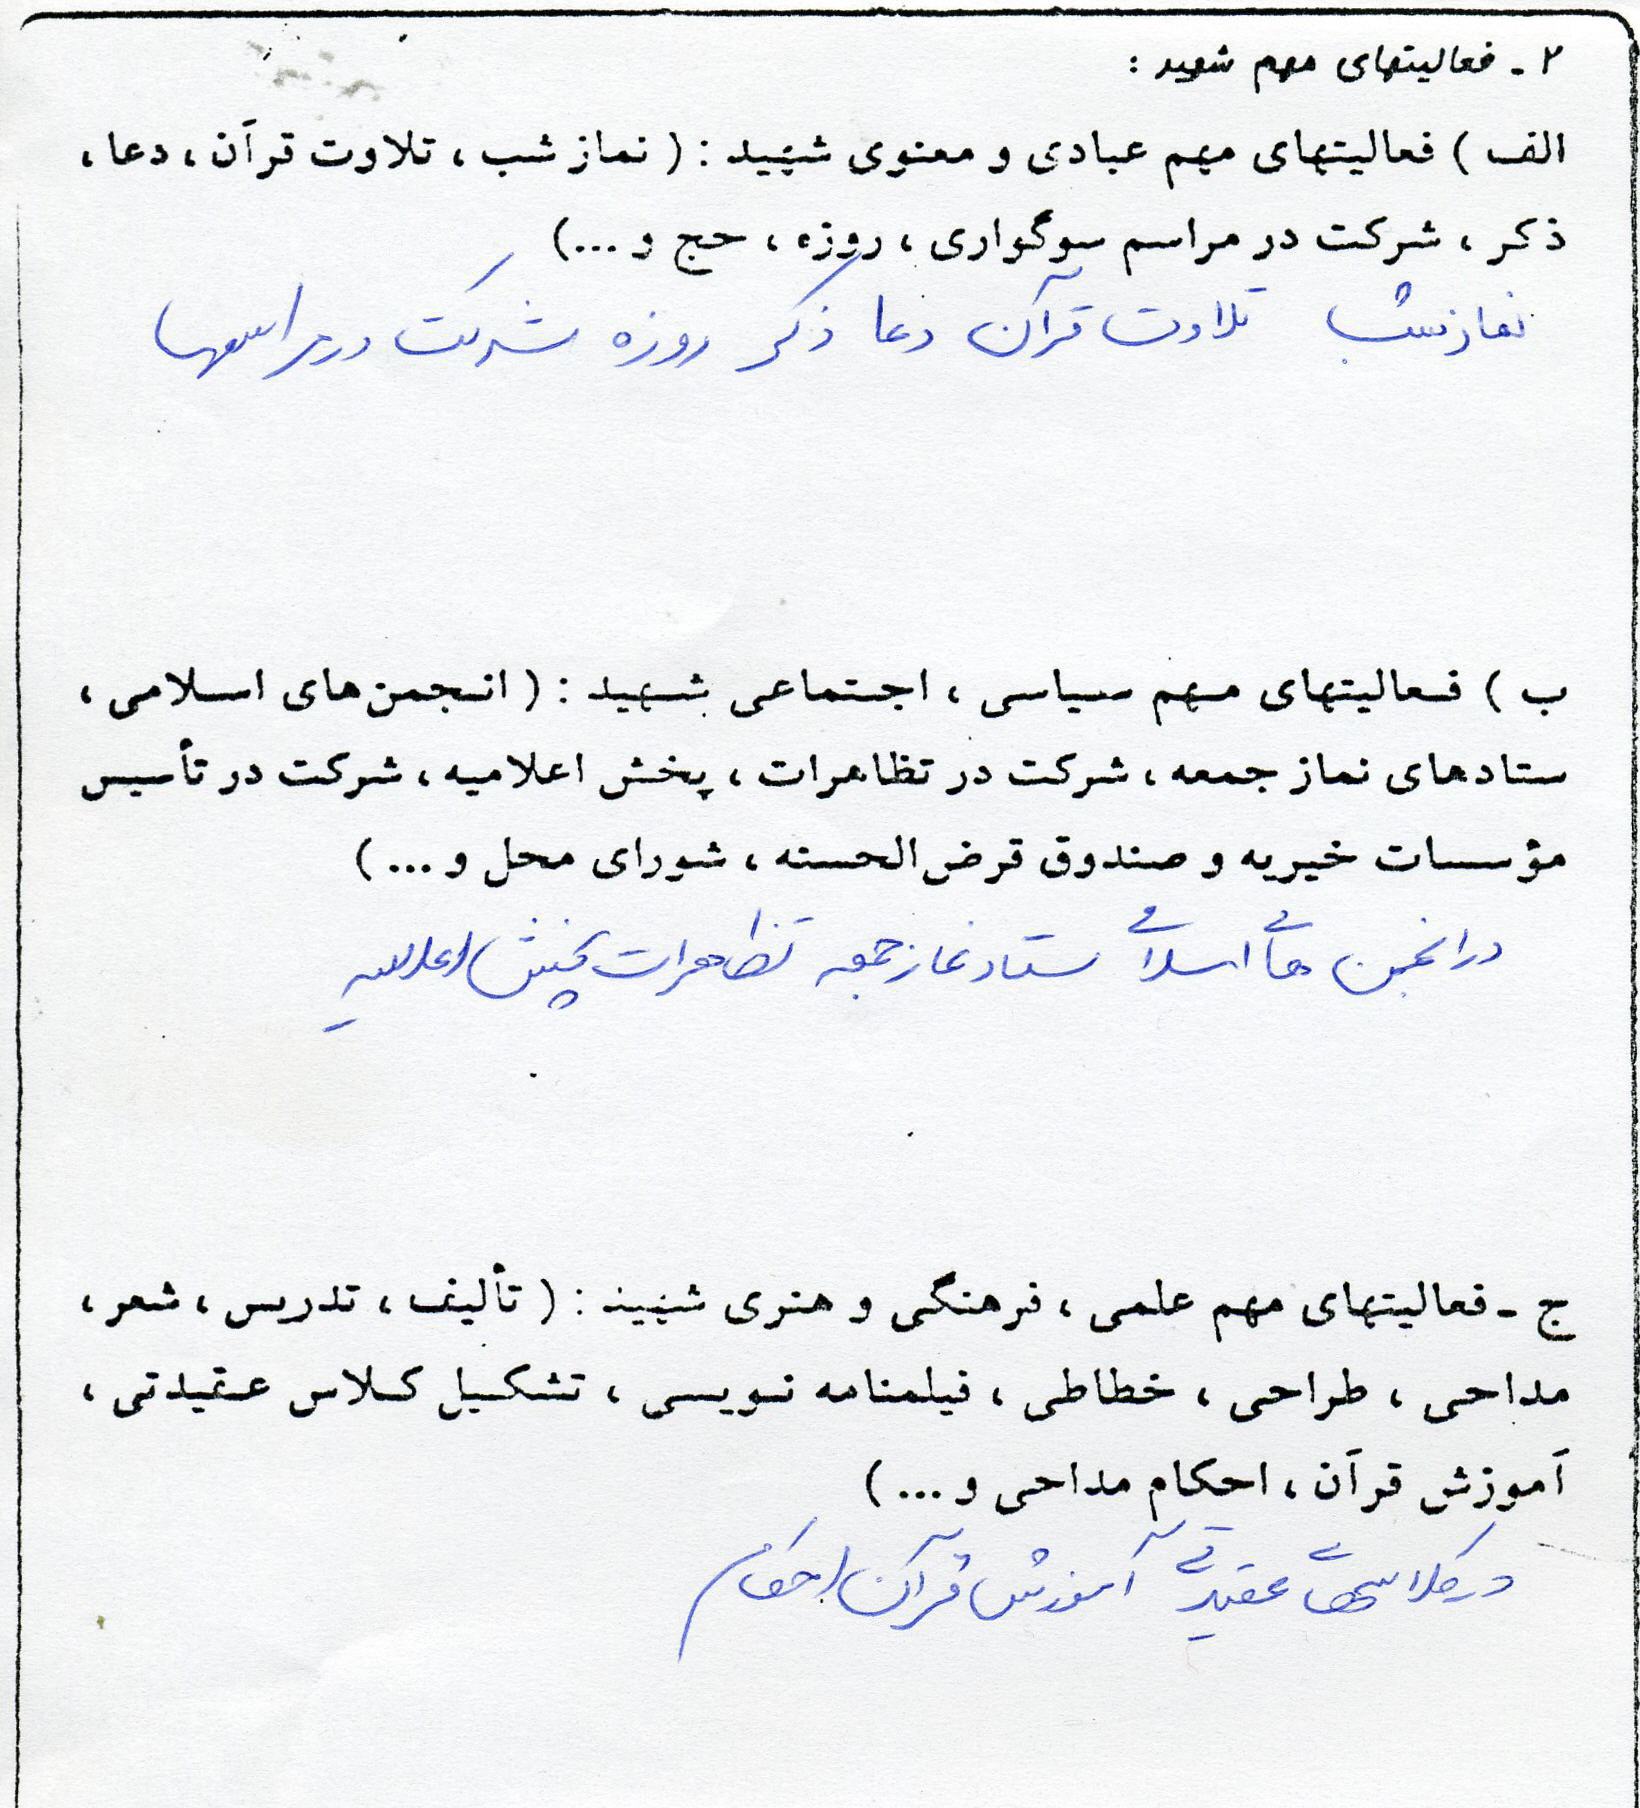 ۲ - فعالیتهای مهم شهید :
الف ) فعالیتهای مهم عبادی و معنوی شهید : ( نماز شب ، تلاوت قرآن ، دعا ،
ذکر ، شرکت در مراسم سوگواری ، روزه ، حج و ...)
نماز شب تلاوت قرآن دعا ذکر روزه شرکت در مراسمها
ب ) فعالیتهای مهم سیاسی ، اجتماعی شهید : ( انجمن‌های اسلامی ،
ستادهای نماز جمعه ، شرکت در تظاهرات ، پخش اعلامیه ، شرکت در تأسیس
مؤسسات خیریه و صندوق قرض‌الحسنه ، شورای محل و ... )
در انجمن های اسلامی ستاد نماز جمعه تظاهرات پخش اعلامیه
ج - فعالیتهای مهم علمی ، فرهنگی و هنری شهید : ( تألیف ، تدریس ، شعر ،
مداحی ، طراحی ، خطاطی ، فیلمنامه نویسی ، تشکیل کلاس عقیدتی ،
آموزش قرآن ، احکام مداحی و ... )
در کلاسهای عقیدتی آموزش قرآن احکام